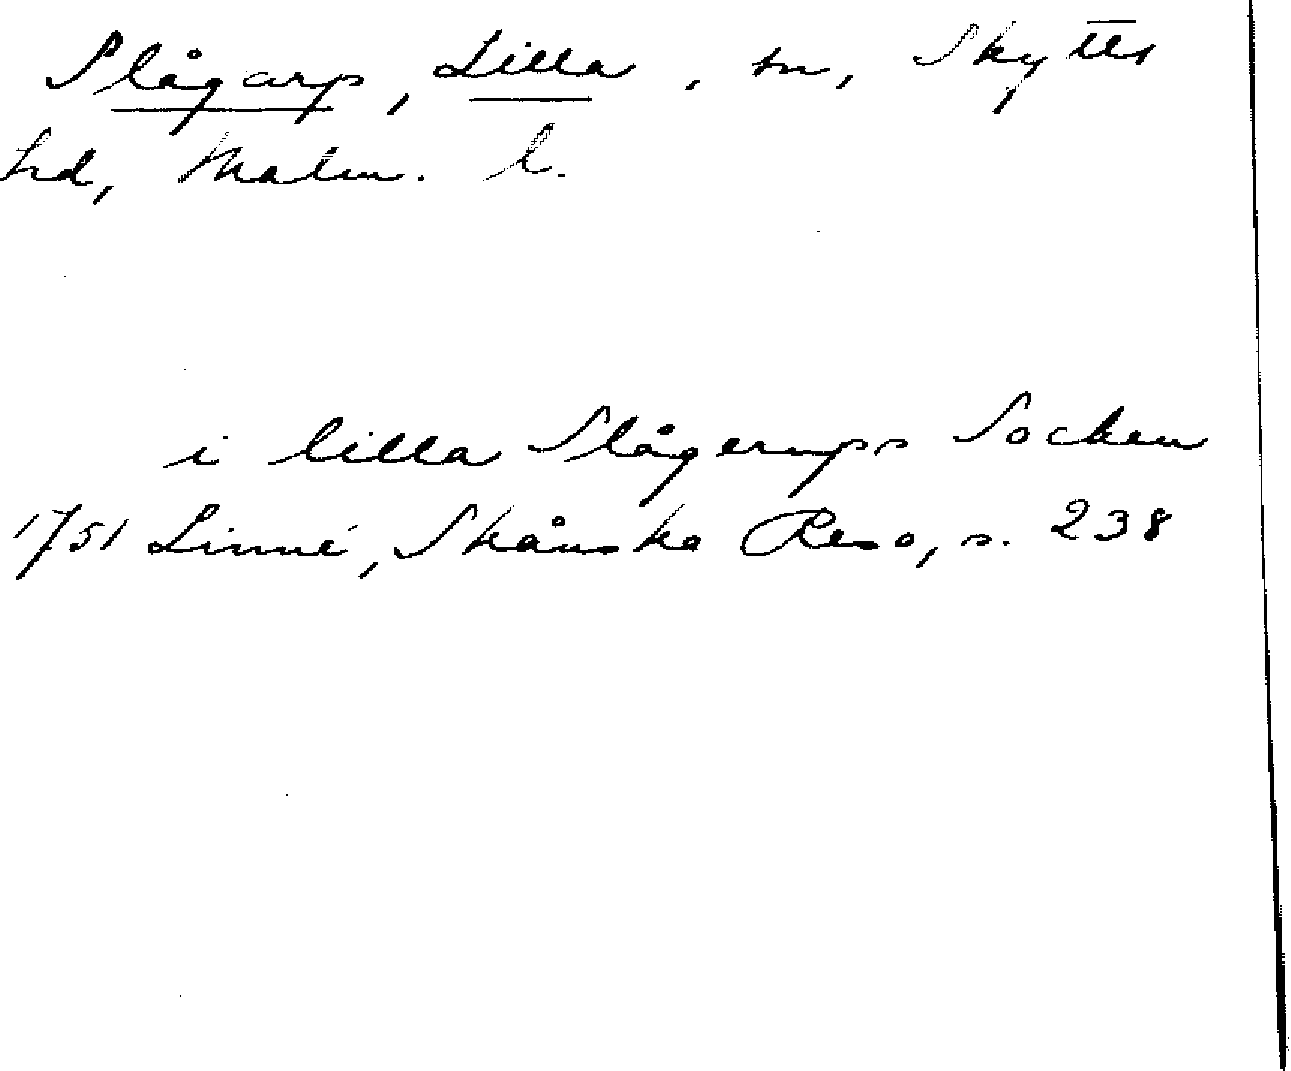 Slågarp, Lilla, sn, Skytts
hd, Malm. l.
i lilla Slågerups Socken
1751 Linné, Skånska Resa, s. 238